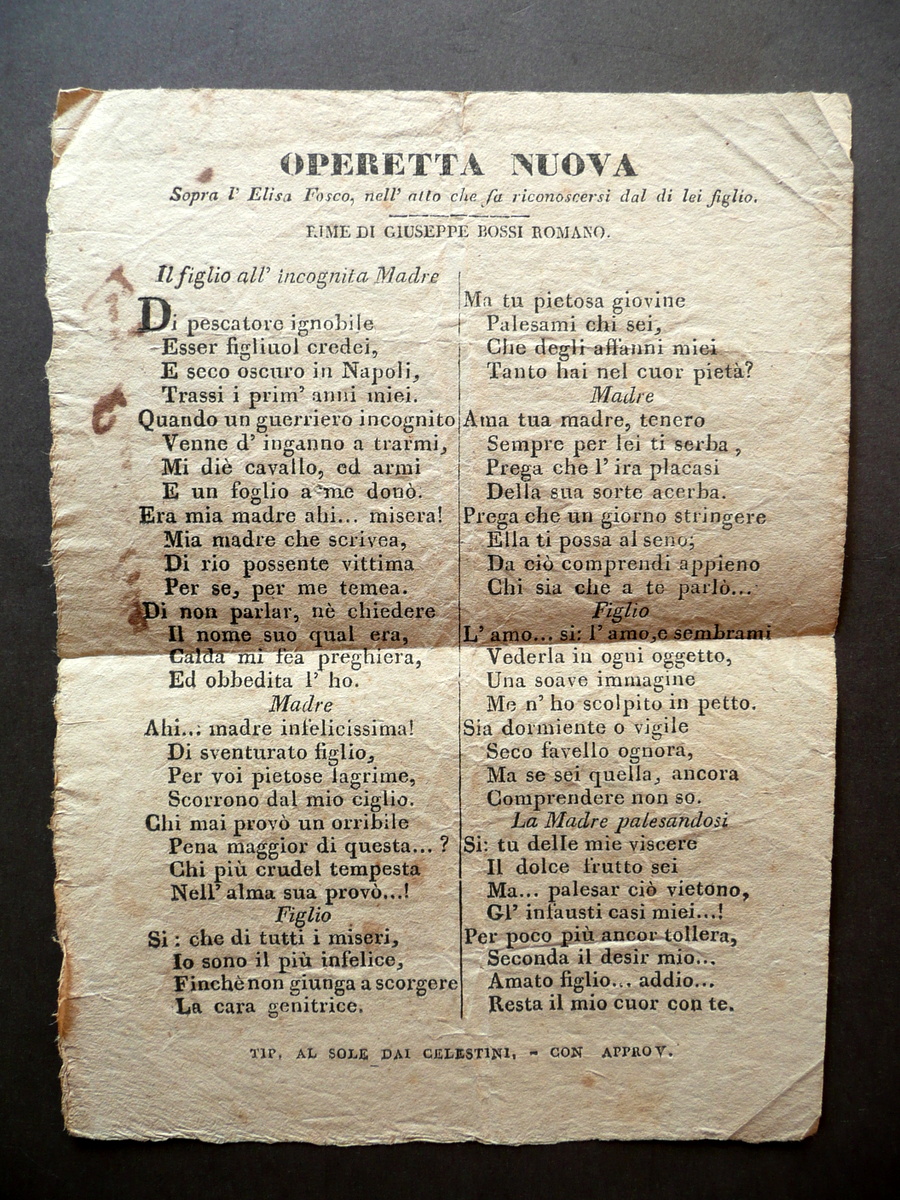 OPERETTA NUOVA
Sopra l' Elisa Fosco, nell' atto che fa riconoscersi dal di lei figlio.
RIME DI GIUSEPPE BOSSI ROMANO.
Il figlio all' incognita Madre
Di pescatore ignobile
Esser figliuol credei,
E seco oscuro in Napoli,
Trassi i prim' anni miei.
Quando un guerriero incognito
Venne d' inganno a trarmi,
Mi diè cavallo, ed armi
E un foglio a me donò.
Era mia madre ahi... misera!
Mia madre che scrivea,
Di rio possente vittima
Per se, per me temea.
Di non parlar, nè chiedere
Il nome suo qual era,
Calda mi fea preghiera,
Ed obbedita l' ho.
Madre
Ahi..: madre infelicissima!
Di sventurato figlio,
Per voi pietose lagrime,
Scorrono dal mio ciglio.
Chi mai provò un orribile
Pena maggior di questa... ?
Chi più crudel tempesta
Nell' alma sua provò...!
Figlio
Si : che di tutti i miseri,
Io sono il più infelice,
Finchè non giunga a scorgere
La cara genitrice.
Ma tu pietosa giovine
Palesami chi sei,
Che degli affanni miei
Tanto hai nel cuor pietà?
Madre
Ama tua madre, tenero
Sempre per lei ti serba ,
Prega che l' ira placasi
Della sua sorte acerba.
Prega che un giorno stringere
Ella ti possa al seno;
Da ciò comprendi appieno
Chi sia che a te parlò...
Figlio
L' amo... si: l' amo,e sembrami
Vederla in ogni oggetto,
Una soave immagine
Me n' ho scolpito in petto.
Sia dormiente o vigile
Seco favello ognora,
Ma se sei quella, ancora
Comprendere non so.
La Madre palesandosi
Si: tu delle mie viscere
Il dolce frutto sei
Ma... palesar ciò vietono,
Gl' infausti casi miei...!
Per poco più ancor tollera,
Seconda il desìr mio...
Amato figlio... addio...
Resta il mio cuor con te.
TIP, AL SOLE DAI CELESTINI, - CON APPROV.